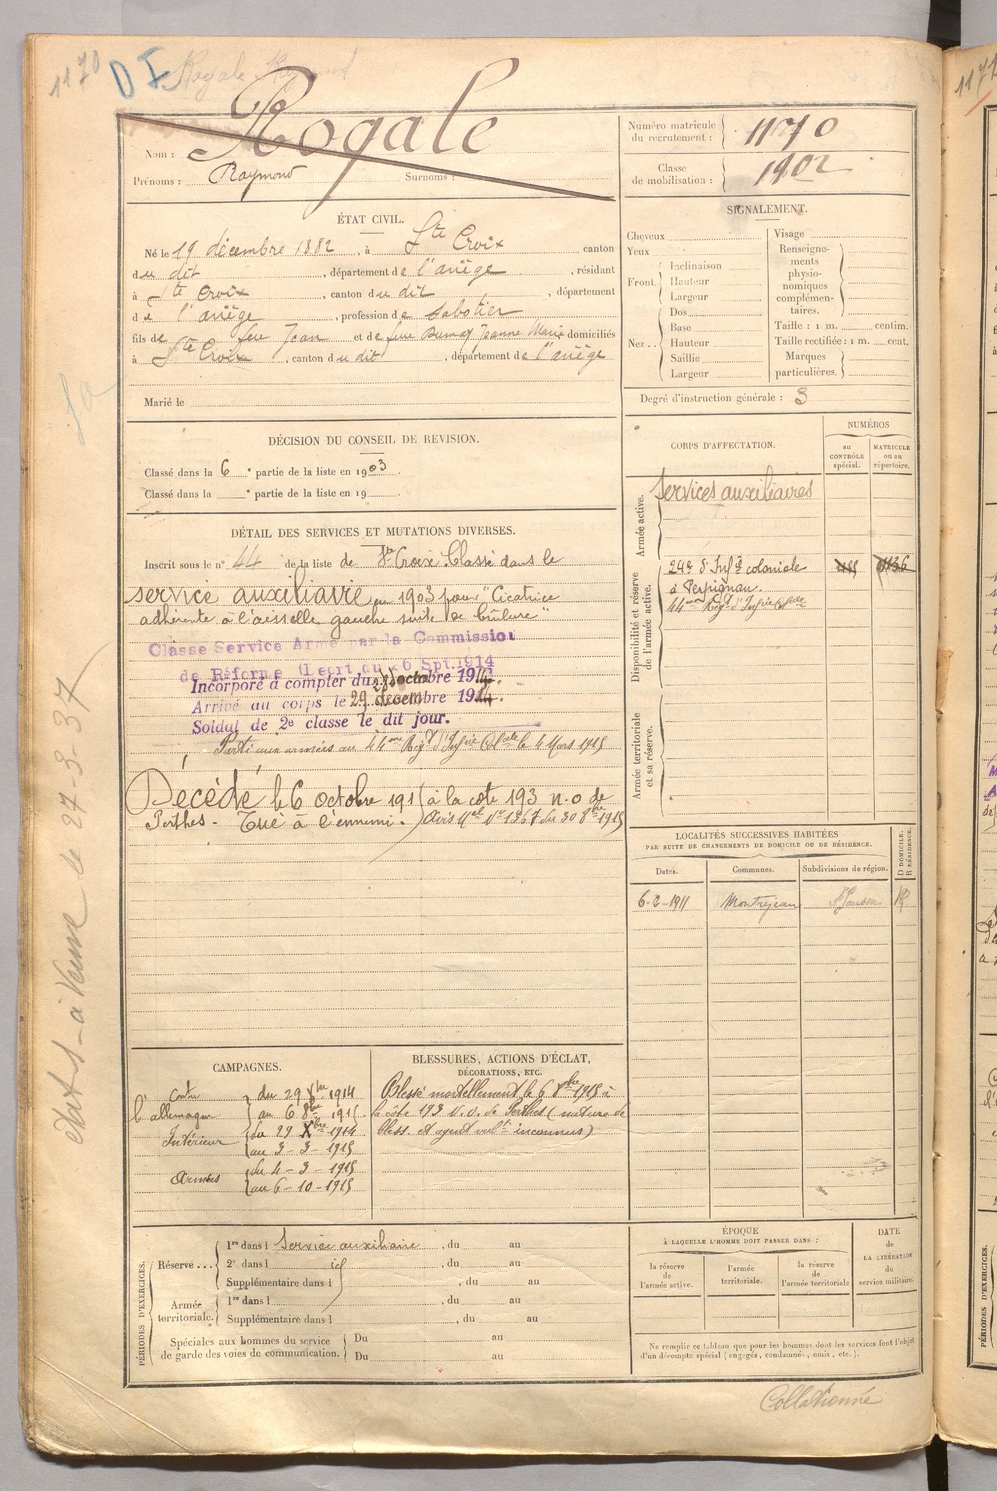 1170 DI Rogale Raymond
Nom : Rogale
Prénoms : Raymond Surnoms :
Numéro matricule du recrutement : 1170
Classe de mobilisation : 1902
ÉTAT CIVIL.
Né le 19 décembre 1882, à Ste Croix canton
du dit, département de l'ariège, résidant
à Ste Croix, canton du dit, département
de l'ariège, profession de sabotier
fils de feu Jean et de feue Dumay Jeanne Marie domiciliés
à Ste Croix, canton du dit, département de l'ariège
Marié le
SIGNALEMENT.
Cheveux
Yeux
Front. Inclinaison
Hauteur
Largeur
Nez.. Dos
Base
Hauteur
Saillie
Largeur
Visage
Renseigne-
ments
physio-
nomiques
complémen-
taires.
Taille : 1 m. centim.
Taille rectifiée : 1 m. cent.
Marques
particulières.
Degré d'instruction générale : 3
DÉCISION DU CONSEIL DE REVISION.
Classé dans la 6e partie de la liste en 1903.
Classé dans la e partie de la liste en 19
CORPS D'AFFECTATION.
NUMÉROS
au CONTRÔLE spécial.
MATRICULE ou au répertoire.
Armée active.
Services auxiliaires
Disponibilité et réserve de l'armée active.
24e d'Infie coloniale
à Perpignan.
44me Regt d'Infrie Colale
Armée territoriale et sa réserve.
DÉTAIL DES SERVICES ET MUTATIONS DIVERSES.
Inscrit sous le no 44 de la liste de Ste Croix. Classé dans le
service auxiliaire en 1903 pour "Cicatrice
adhérente à l'aisselle gauche suite de brûlure"
Classe Service Armé par la Commission
de Réforme (Décret du 26 Spt. 1914
Incorporé à compter du 1914.
Arrivé au corps le 29 décembre 1914.
Soldat de 2e classe le dit jour.
Parti aux armées au 44me Regt d'Infrie Colale le 4 Mars 1915
Décédé le 6 octobre 1915 à la cote 193 n.o de
Perthes - Tué à l'ennemi. Avis Mel No 1367 du 30 8bre 1915
Etat S - à Vanne le 27-3-37
LOCALITÉS SUCCESSIVES HABITÉES
PAR SUITE DE CHANGEMENTS DE DOMICILE OU DE RÉSIDENCE.
D DOMICILE. R RÉSIDENCE.
Dates. Communes. Subdivisions de région.
6-2-1911 Montrejeau St Gaudens R
CAMPAGNES.
Contre l'allemagne du 29 Xbre 1914
au 6 8bre 1915
Intérieur du 29 Xbre 1914
au 3-3-1915
Armées du 4-3-1915
au 6-10-1915
BLESSURES, ACTIONS D'ÉCLAT,
DÉCORATIONS, ETC.
Blessé mortellement le 6 8bre 1915 à
la côte 193 N.O. de Perthes (nature de
bless. et agent inconnus)
PÉRIODES D'EXERCICES.
Réserve... 1re dans l Service auxiliaire, du au
2e dans l id, du au
Supplémentaire dans l, du au
Armée territoriale. 1re dans l, du au
Supplémentaire dans l, du au
Spéciales aux hommes du service Du au
de garde des voies de communication. Du au
ÉPOQUE
À LAQUELLE L'HOMME DOIT PASSER DANS :
la réserve de l'armée active.
l'armée territoriale.
la réserve de l'armée territoriale
DATE de LA LIBÉRATION du service militaire.
Ne remplir ce tableau que pour les hommes dont les services font l'objet
d'un décompte spécial (engagés, condamnés, omis, etc.).
Collationné